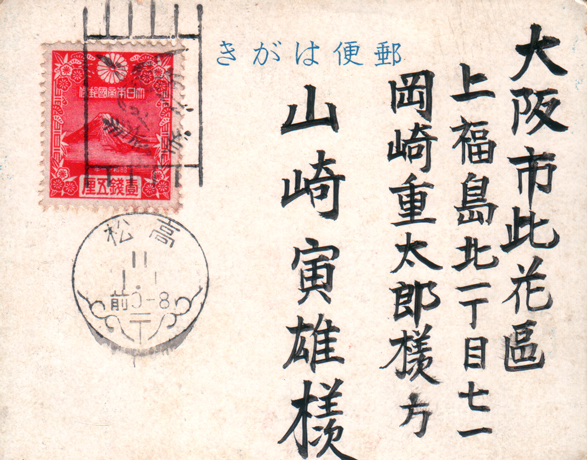 郵便はがき
大阪市此花區
上福島北一丁目七一
岡崎重太郎様方
山崎寅雄様
大日本帝國郵便
壹錢五厘
高松
11
1.1
前0-8
〒